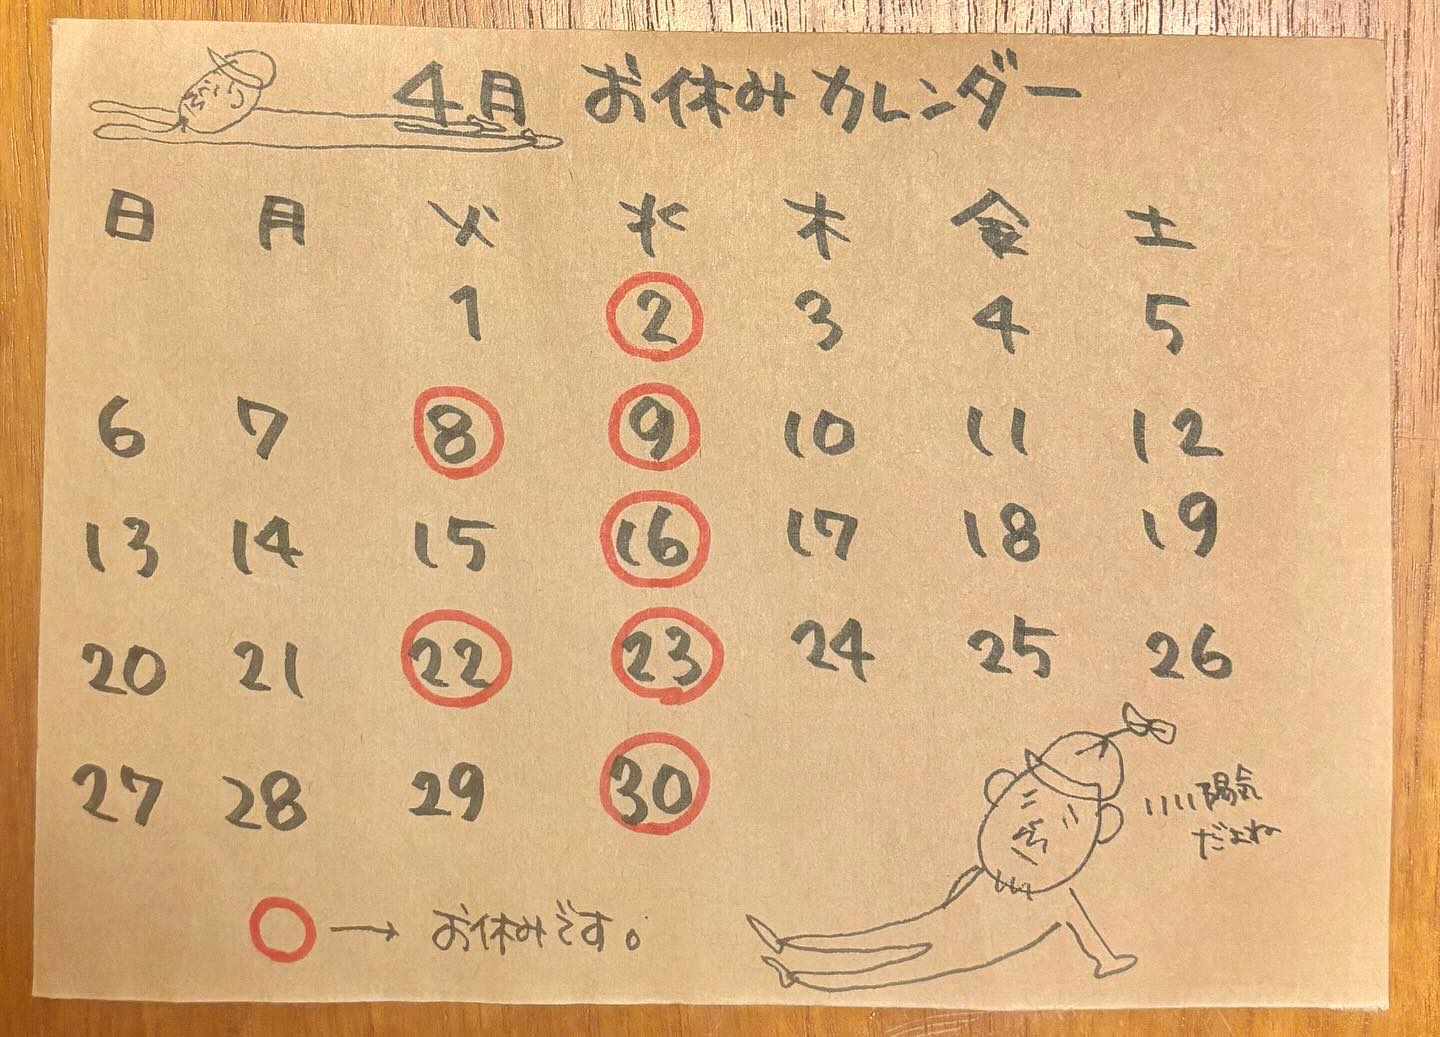 4月 お休みカレンダー
日 月 火 水 木 金 土
1 2 3 4 5
6 7 8 9 10 11 12
13 14 15 16 17 18 19
20 21 22 23 24 25 26
27 28 29 30
いい陽気
だよね
○→お休みです。